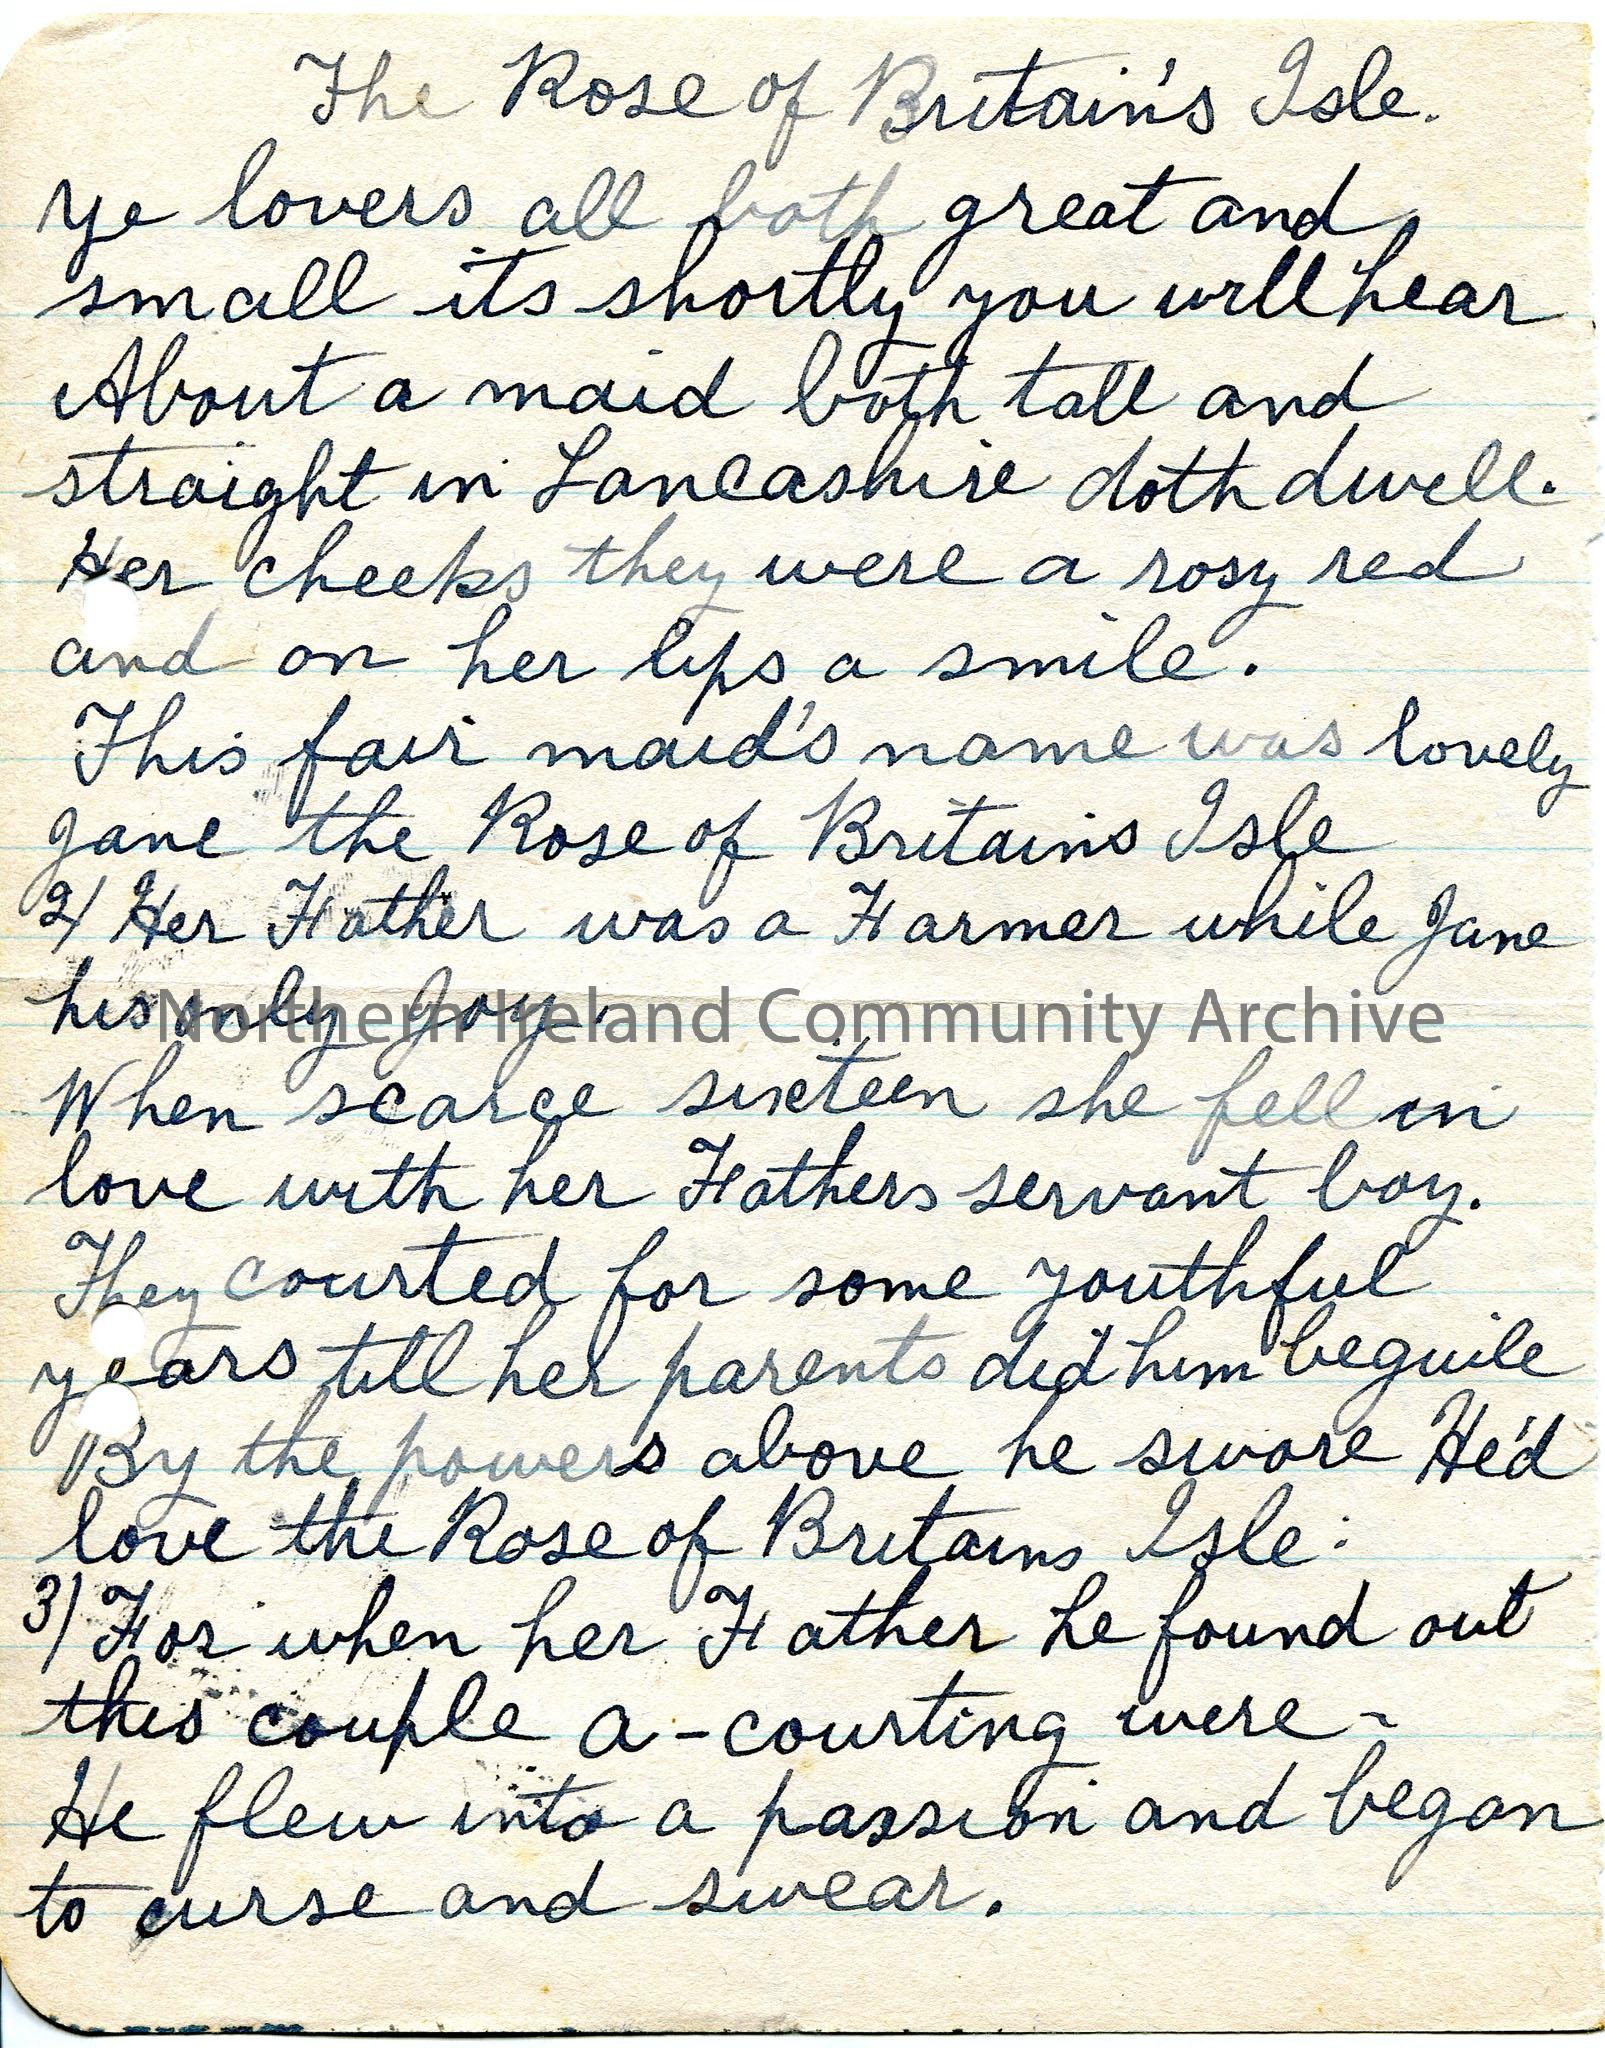 The Rose of Britain's Isle.
Ye lovers all both great and
small its shortly you will hear
About a maid both tall and
straight in Lancashire doth dwell.
Her cheeks they were a rosy red
and on her lips a smile.
This fair maid's name was lovely
Jane the Rose of Britains Isle
2/ Her Father was a Farmer while Jane
his only Joy.
Northern Ireland Community Archive
When scarce sixteen she fell in
love with her Fathers servant boy.
They courted for some youthful
years till her parents did him beguile
By the powers above he swore He'd
love the Rose of Britains Isle:
3/ For when her Father he found out
this couple a-courting were -
He flew into a passion and began
to curse and swear.